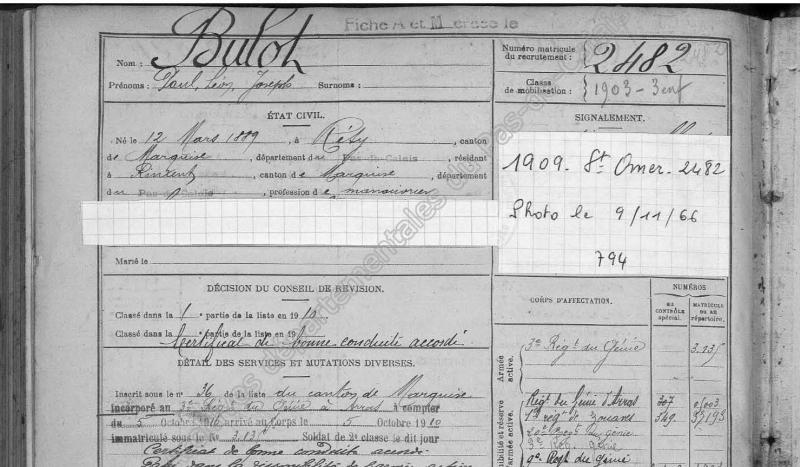 Fiche A et M
Nom : Buloh
Numéro matricule du recrutement : 2482
Prénoms : Paul, Léon, Joseph Surnoms :
Classe de mobilisation : 1903 - 3 enf
ÉTAT CIVIL.
SIGNALEMENT.
Né le 12 Mars 1889, à Réty, canton
de Marquise, département du Pas-de-Calais, résidant
à Rinxent, canton de Marquise, département
du Pas-de-Calais, profession de manouvrier
1909. St Omer. 2482
Photo le 9/11/66
794
Marié le
DÉCISION DU CONSEIL DE REVISION.
Classé dans la 1 partie de la liste en 1910
Classé dans la partie de la liste en 19
Certificat de bonne conduite accordé
DÉTAIL DES SERVICES ET MUTATIONS DIVERSES.
Inscrit sous le n° 36 de la liste du canton de Marquise
Incorporé au 3e Régt du Génie à Arras à compter
du 5 Octobre 1910 arrivé au corps le 5 Octobre 1910
immatriculé sous le Soldat de 2e classe le dit jour
Certificat de bonne conduite accordé
dans la disponibilité de l'armée active
CORPS D'AFFECTATION.
NUMÉROS
AU CONTRÔLE spécial.
MATRICULE OU AU répertoire.
Armée active.
3e Régt du Génie 3.135
Régt du Génie d'Arras 307
1er régt de Zouaves 349.
20e Régt du génie
9e Régt du Génie
Archives départementales du Pas-de-Calais